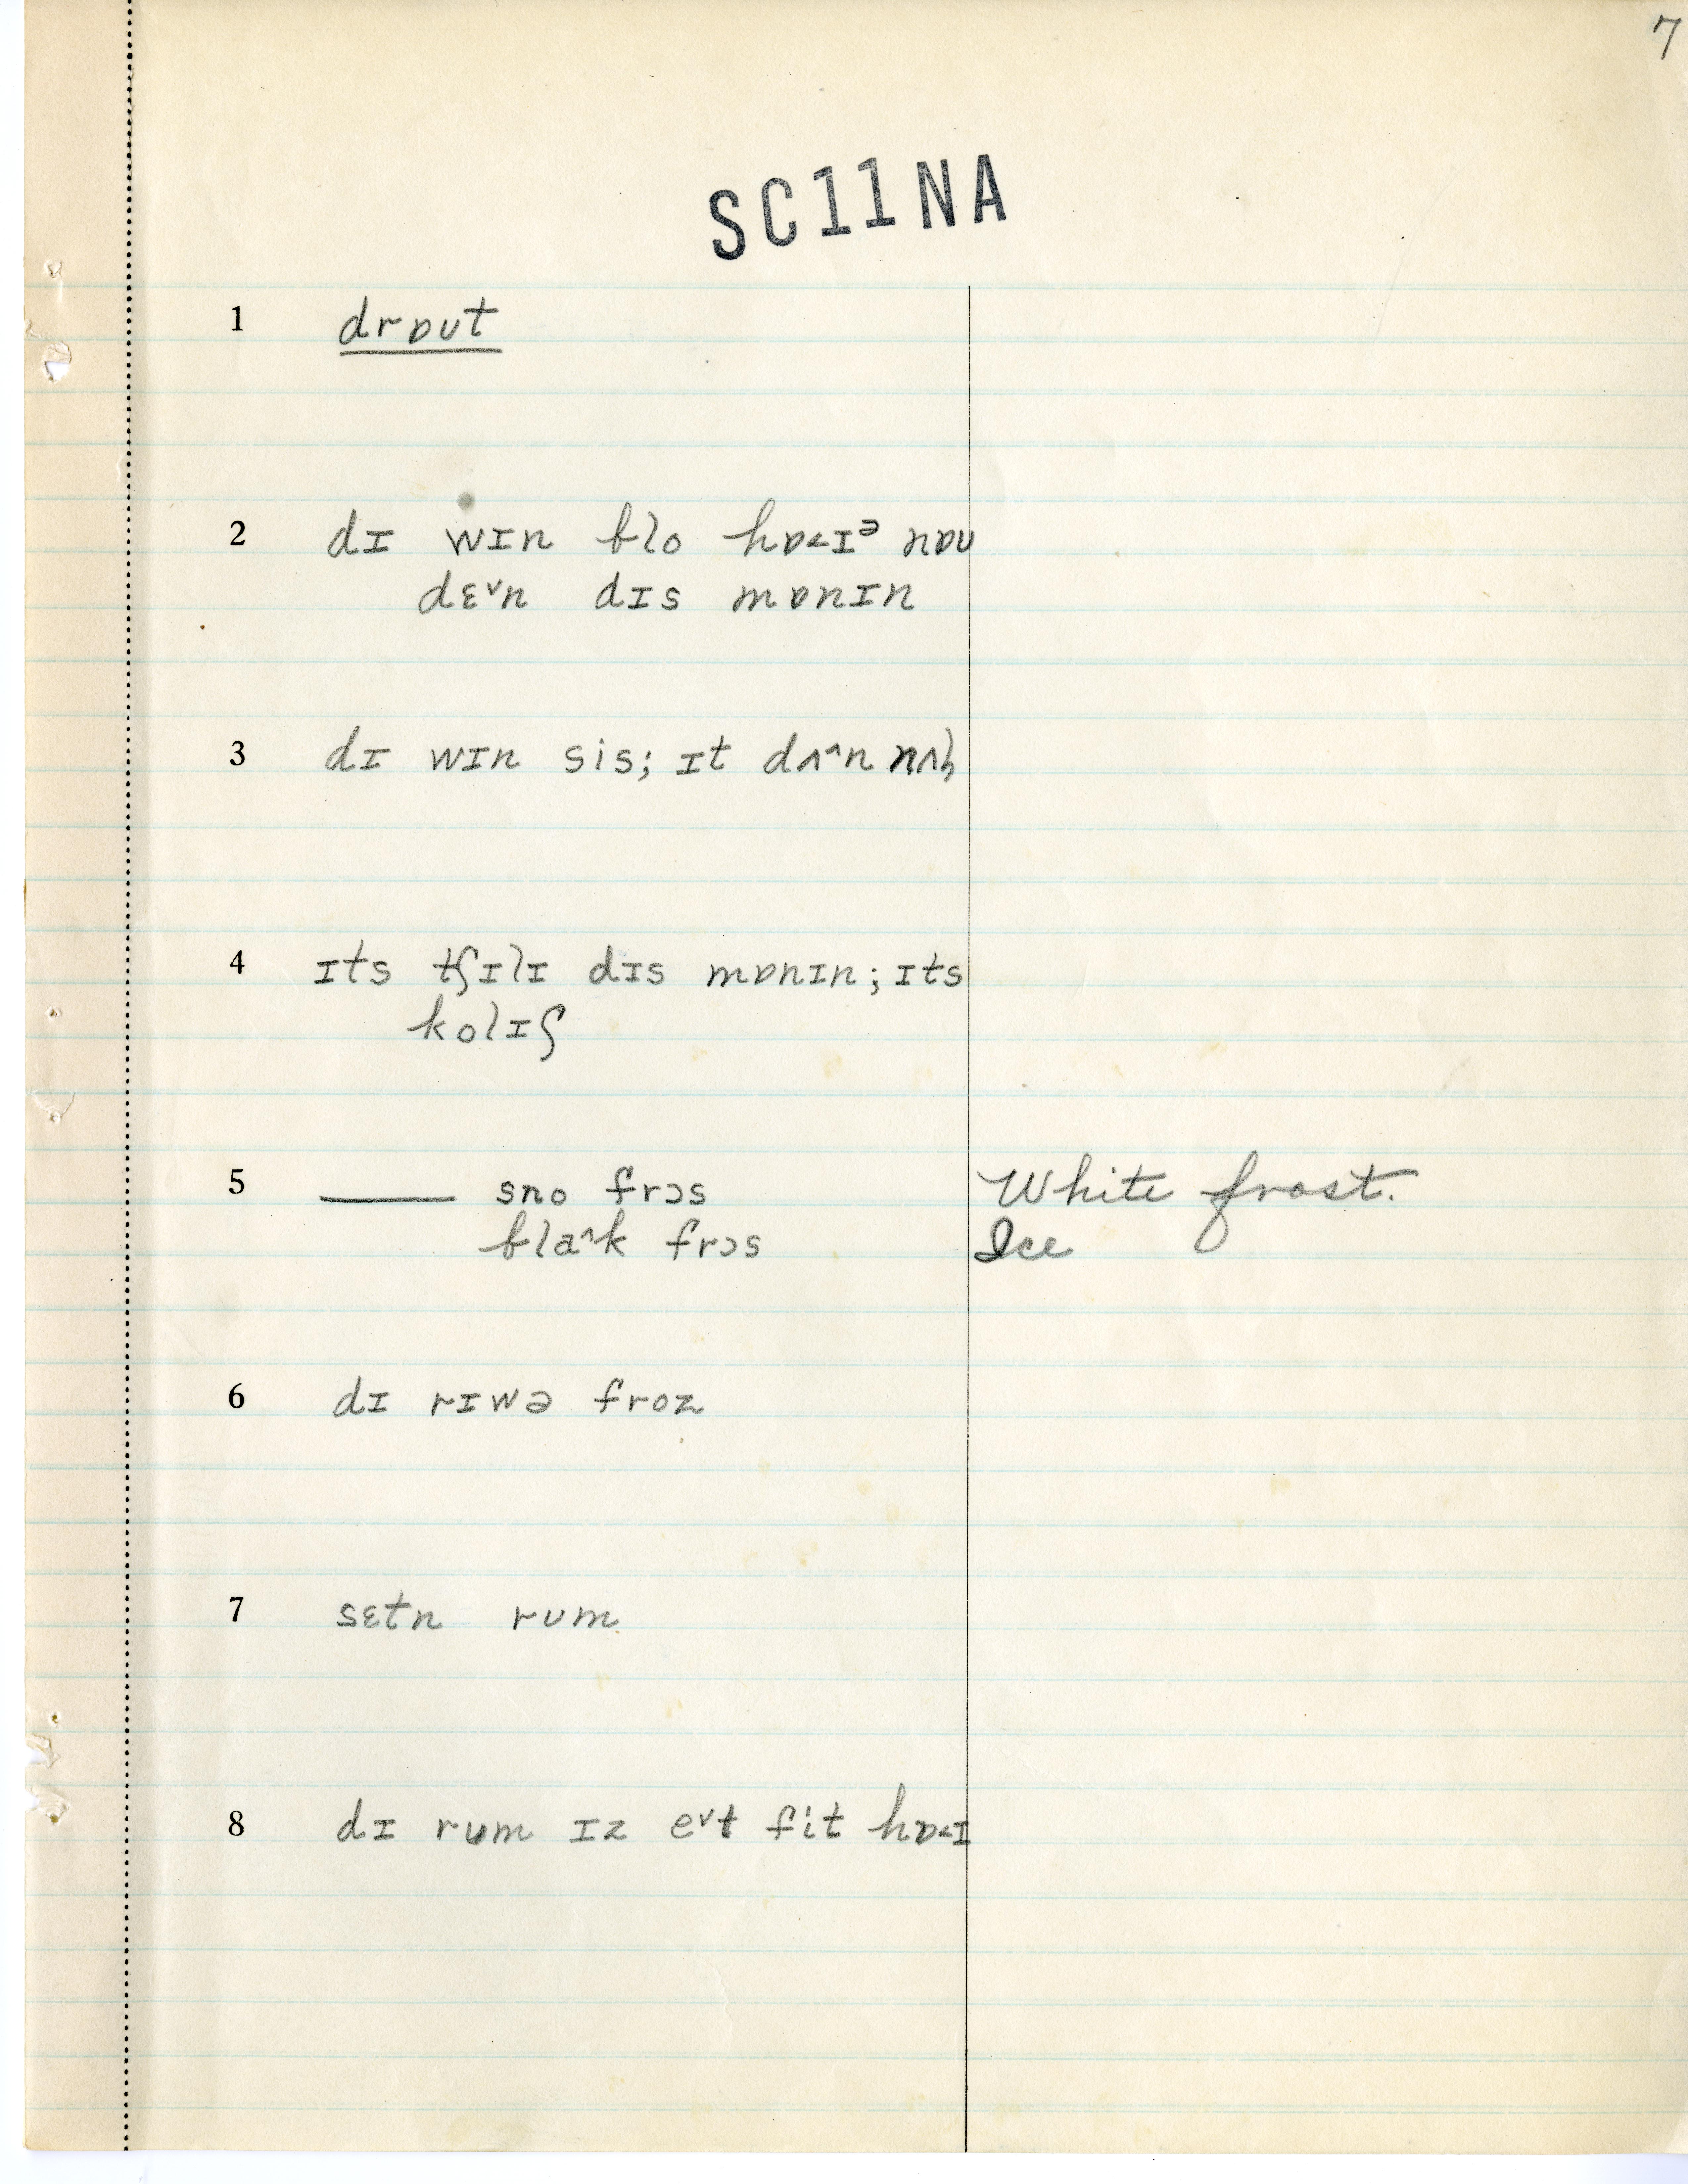 7
SC11NA
1 drɒʊt
2 dɪ wɪn blo hɒ˂ɪᵊ nɒʊ
dɛ˅n dɪs mɒnɪn
3 dɪ wɪn sis; ɪt dʌ˄n
4 ɪts tʃɪlɪ dɪs mɒnɪn; ɪts
kolɪʃ
5 ——— sno frɔs White frost.
bla˄k frɔs Ice
6 dɪ rɪwə froz
7 sɛtn rʊm
8 dɪ rʊm ɪz e˅t fit hɒ˂ɪ